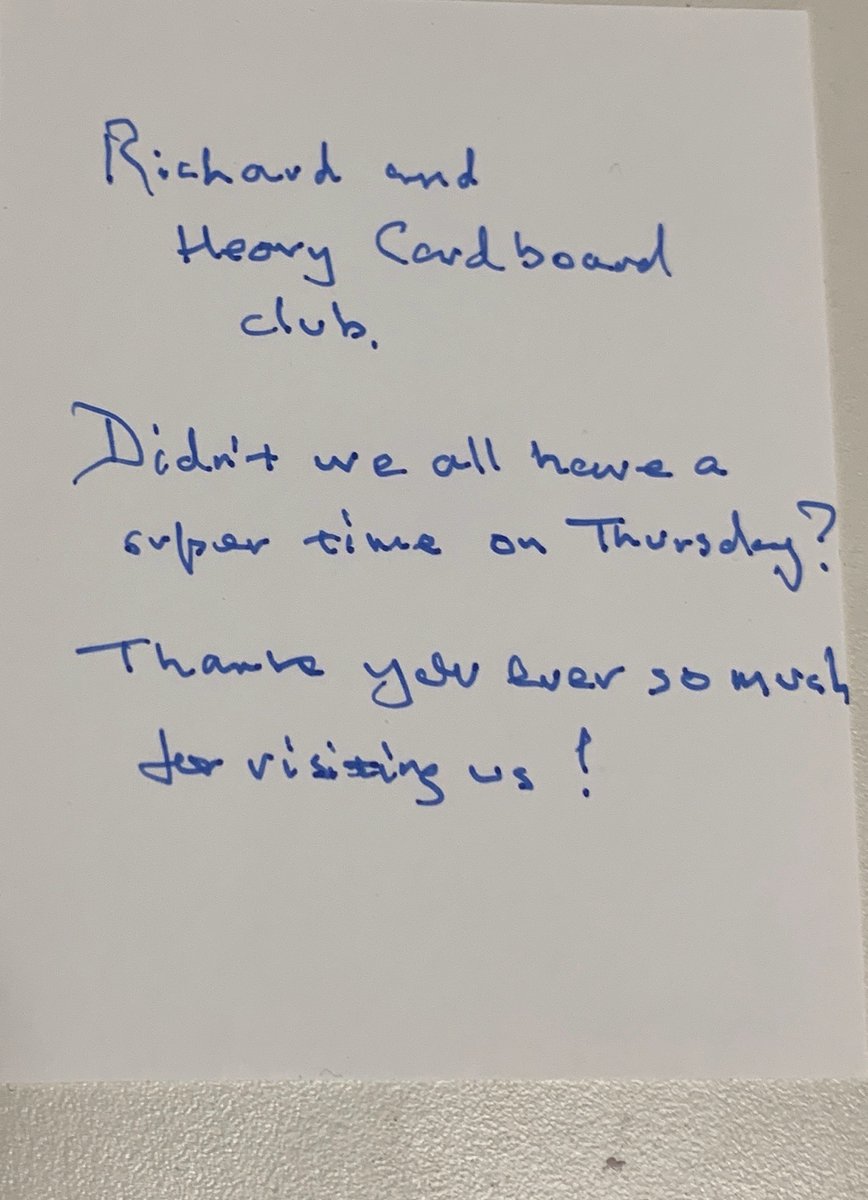 Richard and
Heavy Cardboard
club.
Didn't we all have a
super time on Thursday?
Thank you ever so much
for visiting us!